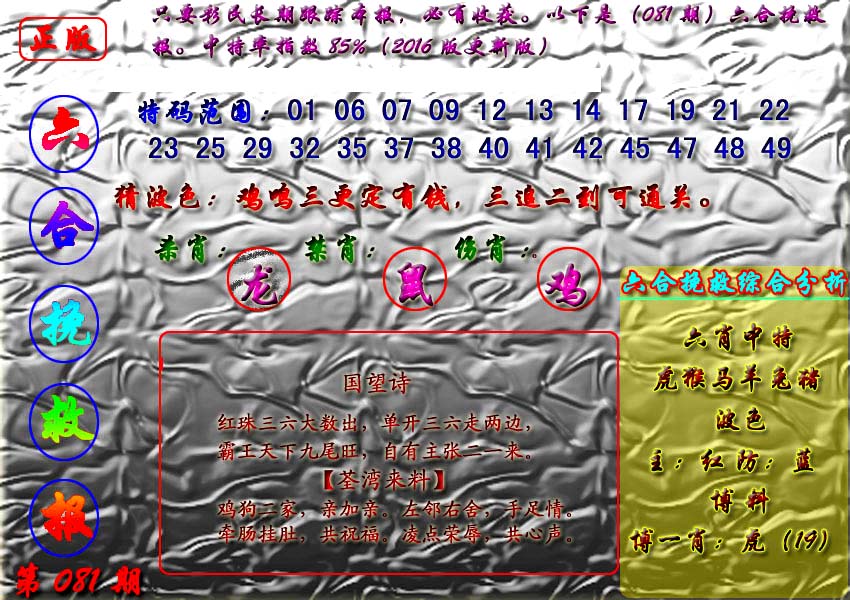 正版
只要彩民长期跟踪本报，必有收获。以下是（081期）六合挽救
报。中特率指数85%（2016版更新版）
六合挽救报
第081期
特码范围：01 06 07 09 12 13 14 17 19 21 22
23 25 29 32 35 37 38 40 41 42 45 47 48 49
猜波色：鸡鸣三更定有钱，三追二到可通关。
杀肖：龙 禁肖：鼠 伤肖：。鸡
国望诗
红珠三六大数出，单开三六走两边，
霸王天下九尾旺，自有主张二一来。
【荃湾来料】
鸡狗二家，亲加亲。左邻右舍，手足情。
牵肠挂肚，共祝福。凌点荣辱，共心声。
六合挽救综合分析
六肖中特
虎猴马羊兔猪
波色
主：红防：蓝
博料
博一肖：虎（19）